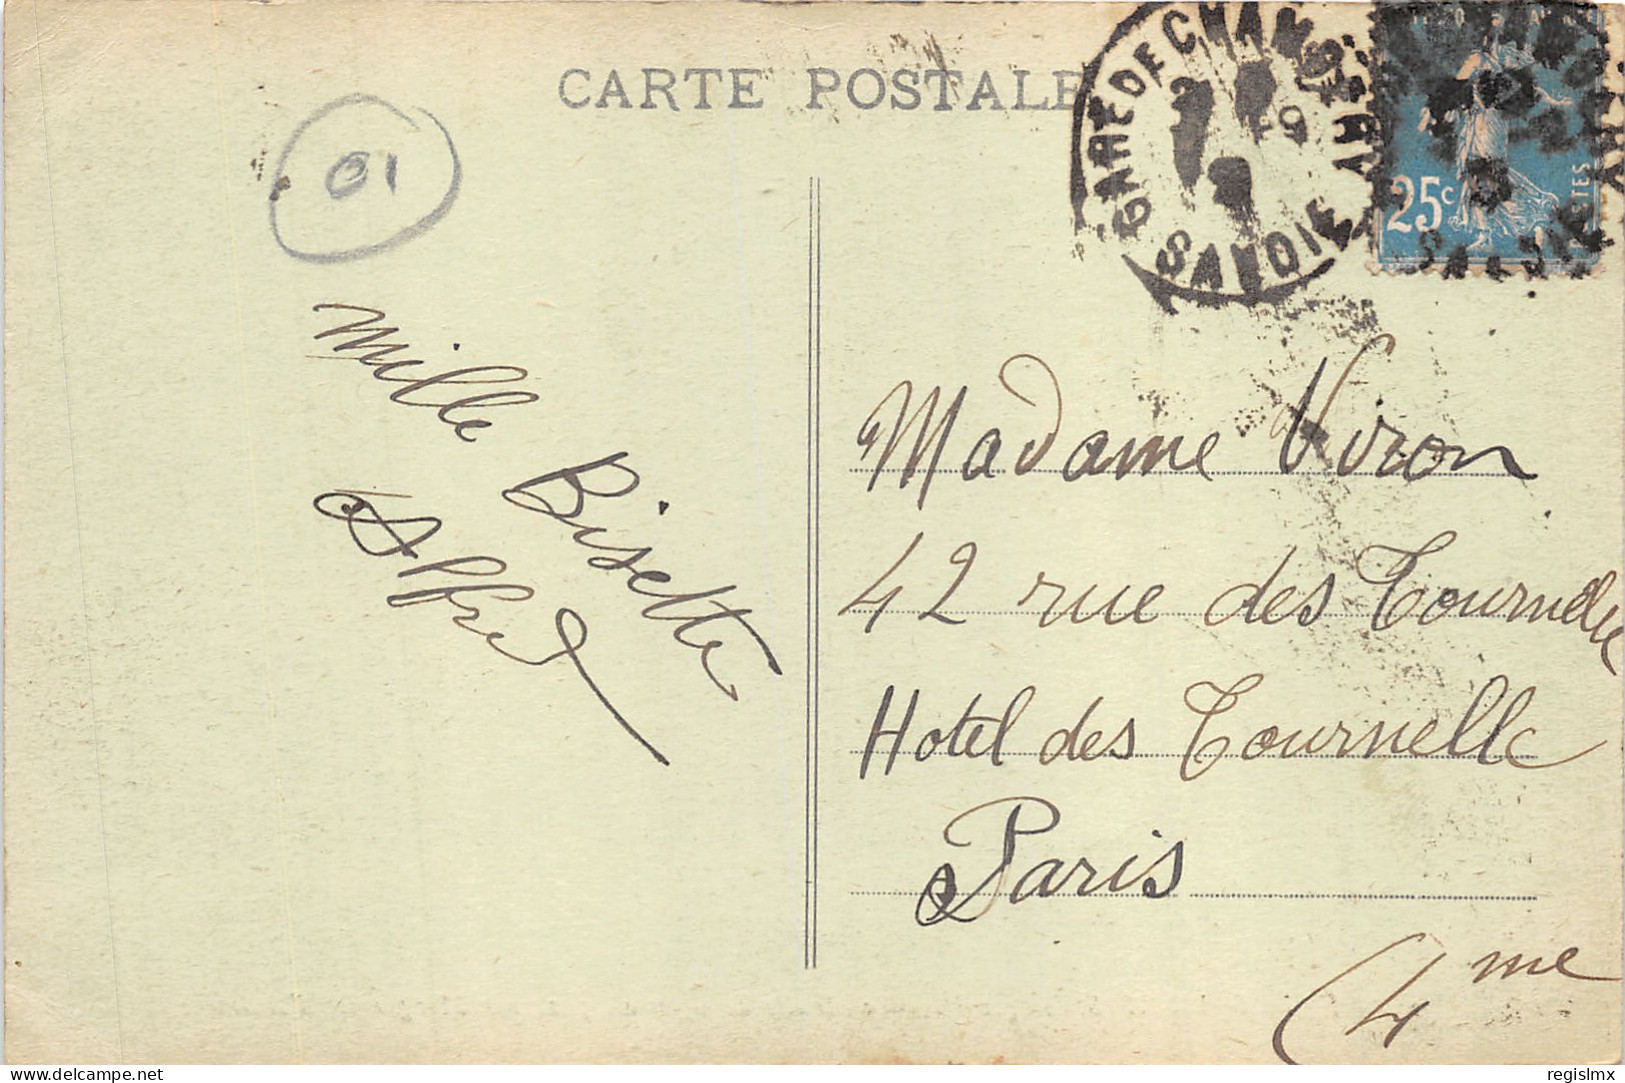 CARTE POSTALE
GARE DE CHAMBERY
SAVOIE
25c
01
Mille
Bisette
Alfred
Madame Viron
42 rue des Tournelle
Hotel des Tournelle
Paris
4me
delcampe.net
regislmx